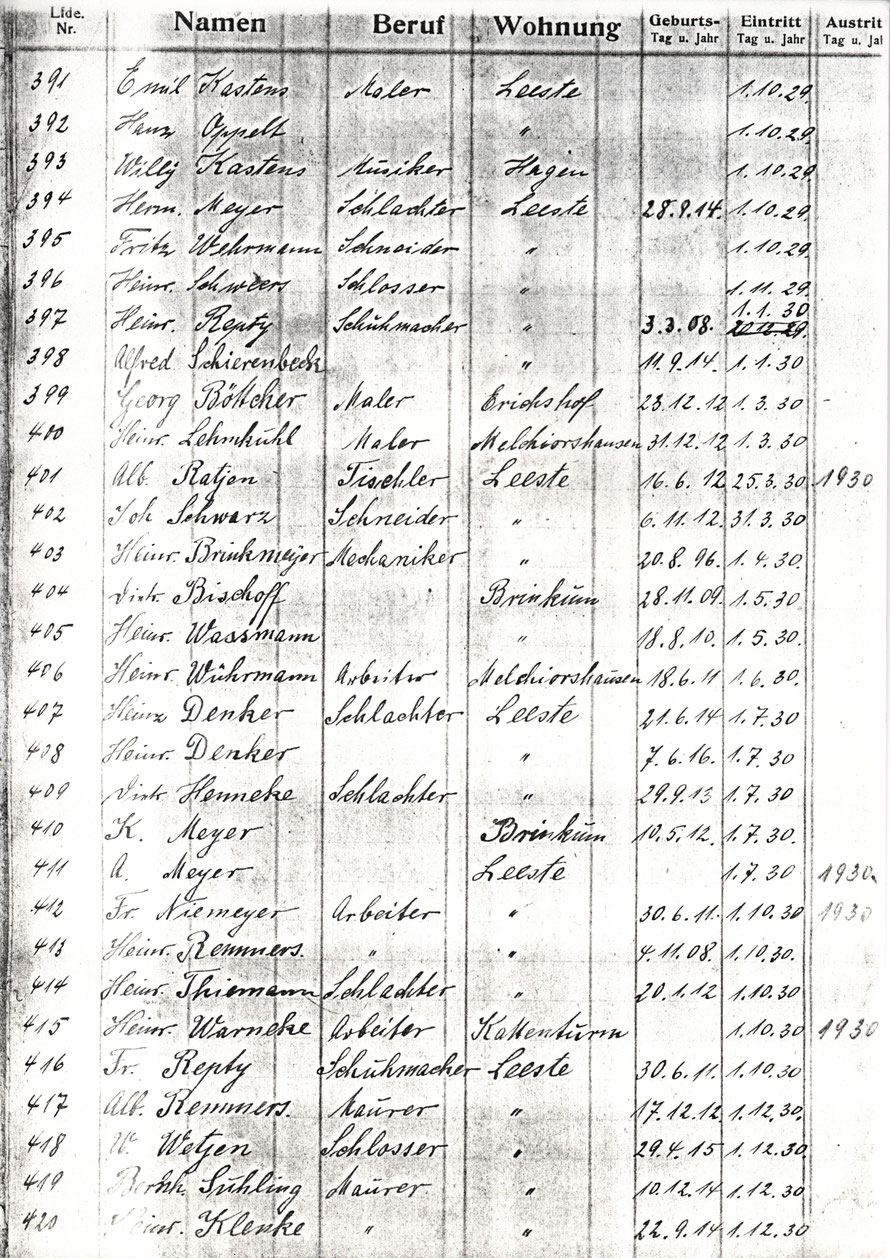 Lfde. Nr. Namen Beruf Wohnung Geburts- Tag u. Jahr Eintritt Tag u. Jahr Austrit Tag u. Jal
391 Emil Kastens Maler Leeste 1.10.29.
392 Hans Oppelt " 1.10.29.
393 Willy Kastens Musiker Hagen 1.10.29.
394 Herm. Meyer Schlachter Leeste 28.9.14. 1.10.29.
395 Fritz Wehrmann Schneider " 1.10.29.
396 Heinr. Schweers Schlosser " 1.11.29.
397 Heinr. Repty Schuhmacher " 3.3.08. 1.1.30
398 Alfred Schierenbeck " 11.9.14. 1.1.30
399 Georg Böttcher Maler Erichshof 23.12.12 1.3.30
400 Heinr. Lehmkuhl Maler Melchiorshausen 31.12.12 1.3.30
401 Alb. Ratjen Tischler Leeste 16.6.12 25.3.30 1930
402 Joh Schwarz Schneider " 6.11.12. 31.3.30
403 Heinr. Brinkmeyer Mechaniker " 20.8.96. 1.4.30.
404 Dietr. Bischoff Brinkum 28.11.09. 1.5.30
405 Heinr. Wassmann " 18.8.10. 1.5.30.
406 Heinr. Wührmann Arbeiter Melchiorshausen 18.6.11 1.6.30.
407 Heinz Denker Schlachter Leeste 21.6.14 1.7.30
408 Heinr. Denker " 7.6.16. 1.7.30
409 Dietr. Henneke Schlachter " 29.9.13 1.7.30
410 K. Meyer Brinkum 10.5.12. 1.7.30.
411 A. Meyer Leeste 1.7.30 1930.
412 Fr. Niemeyer Arbeiter " 30.6.11. 1.10.30 1930
413 Heinr. Remmers. " " 4.11.08. 1.10.30.
414 Heinr. Thiemann Schlachter " 20.1.12 1.10.30
415 Heinr. Warneke Arbeiter Kattenturm 1.10.30 1930
416 Fr. Repty Schuhmacher Leeste 30.6.11. 1.10.30
417 Alb. Remmers. Maurer " 17.12.12. 1.12.30.
418 W. Wetjen Schlosser " 29.4.15 1.12.30.
419 Bernh. Suhling Maurer " 10.12.14 1.12.30
420 Heinr. Klenke " " 22.9.14 1.12.30